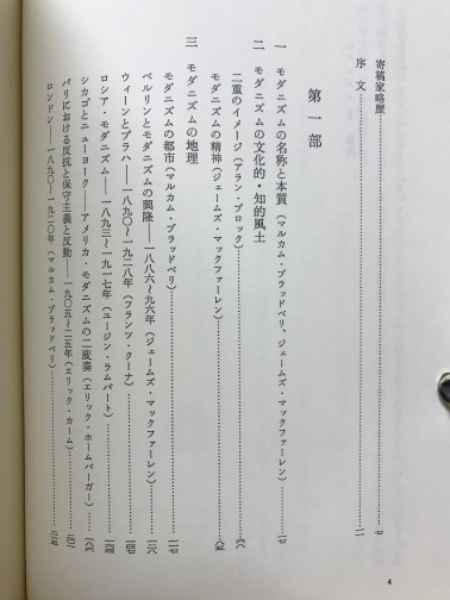 寄稿家略歴……七
序文……一一
第一部
一 モダニズムの名称と本質(マルカム・ブラッドベリ、ジェームズ・マックファーレン)……一七
二 モダニズムの文化的・知的風土
二重のイメージ(アラン・ブロック)……六八
モダニズムの精神(ジェームズ・マックファーレン)……八五
三 モダニズムの地理
モダニズムの都市(マルカム・ブラッドベリ)……一一七
ベルリンとモダニズムの興隆——一八八六〜九六年(ジェームズ・マックファーレン)……一二八
ウィーンとプラハ——一八九〇〜一九二八年(フランツ・クーナ)……一四七
ロシア・モダニズム——一八九三〜一九一七年(ユージン・ランパート)……一六四
シカゴとニューヨーク——アメリカ・モダニズムの二変奏(エリック・ホームバーガー)……一八六
パリにおける反抗と保守主義と反動——一九〇五〜二五年(エリック・カーム)……二〇二
ロンドン——一八九〇〜一九二〇年(マルカム・ブラッドベリ)……
4